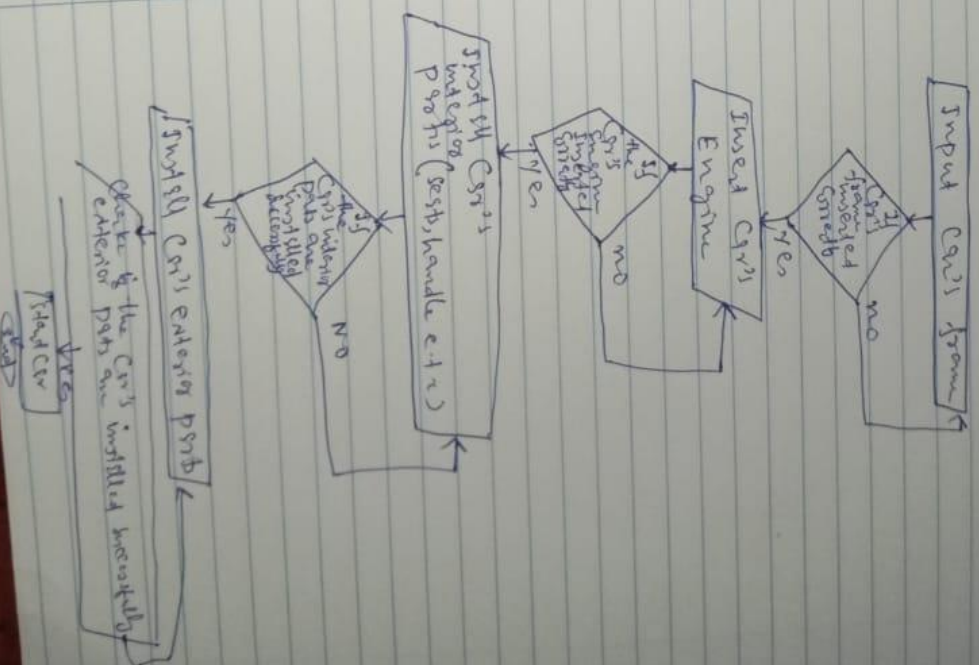 Input Car's frame
If
Car's
frame
inserted
no
yes
Insert Car's
Engine
If
the
Car's
inserted
no
yes
Install Car's
interior
parts (seats, handle etc)
If
the
Car's interior
parts are
installed
successfully
NO
yes
Install Car's exterior parts
Check if the Car's
exterior parts are installed successfully
yes
Start Car
End